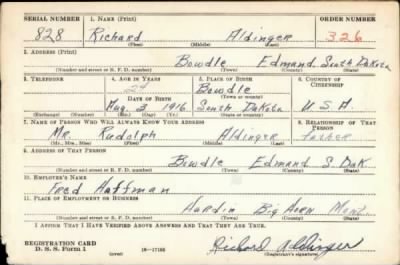 SERIAL NUMBER 1. NAME (Print) ORDER NUMBER
828 Richard Aldinger 326
(First) (Middle) (Last)
2. ADDRESS (Print)
Bowdle Edmund South Dakota
(Number and street or R. F. D. number) (Town) (County) (State)
3. TELEPHONE 4. AGE IN YEARS 5. PLACE OF BIRTH 6. COUNTRY OF CITIZENSHIP
24 Bowdle
DATE OF BIRTH (Town or county)
Aug. 3 1916 South Dakota U.S.A.
(Exchange) (Number) (Mo.) (Day) (Yr.) (State or country)
7. NAME OF PERSON WHO WILL ALWAYS KNOW YOUR ADDRESS 8. RELATIONSHIP OF THAT PERSON
Mr. Rudolph Aldinger Father
(Mr., Mrs., Miss) (First) (Middle) (Last)
9. ADDRESS OF THAT PERSON
Bowdle Edmund S. Dak.
(Number and street or R. F. D. number) (Town) (County) (State)
10. EMPLOYER'S NAME
Fred Hoffman
11. PLACE OF EMPLOYMENT OR BUSINESS
Hardin Big Horn Mont.
(Number and street or R. F. D. number) (Town) (County) (State)
I AFFIRM THAT I HAVE VERIFIED ABOVE ANSWERS AND THAT THEY ARE TRUE.
REGISTRATION CARD
D. S. S. Form 1 (over) 16—17105 Richard Aldinger
(Registrant's signature)